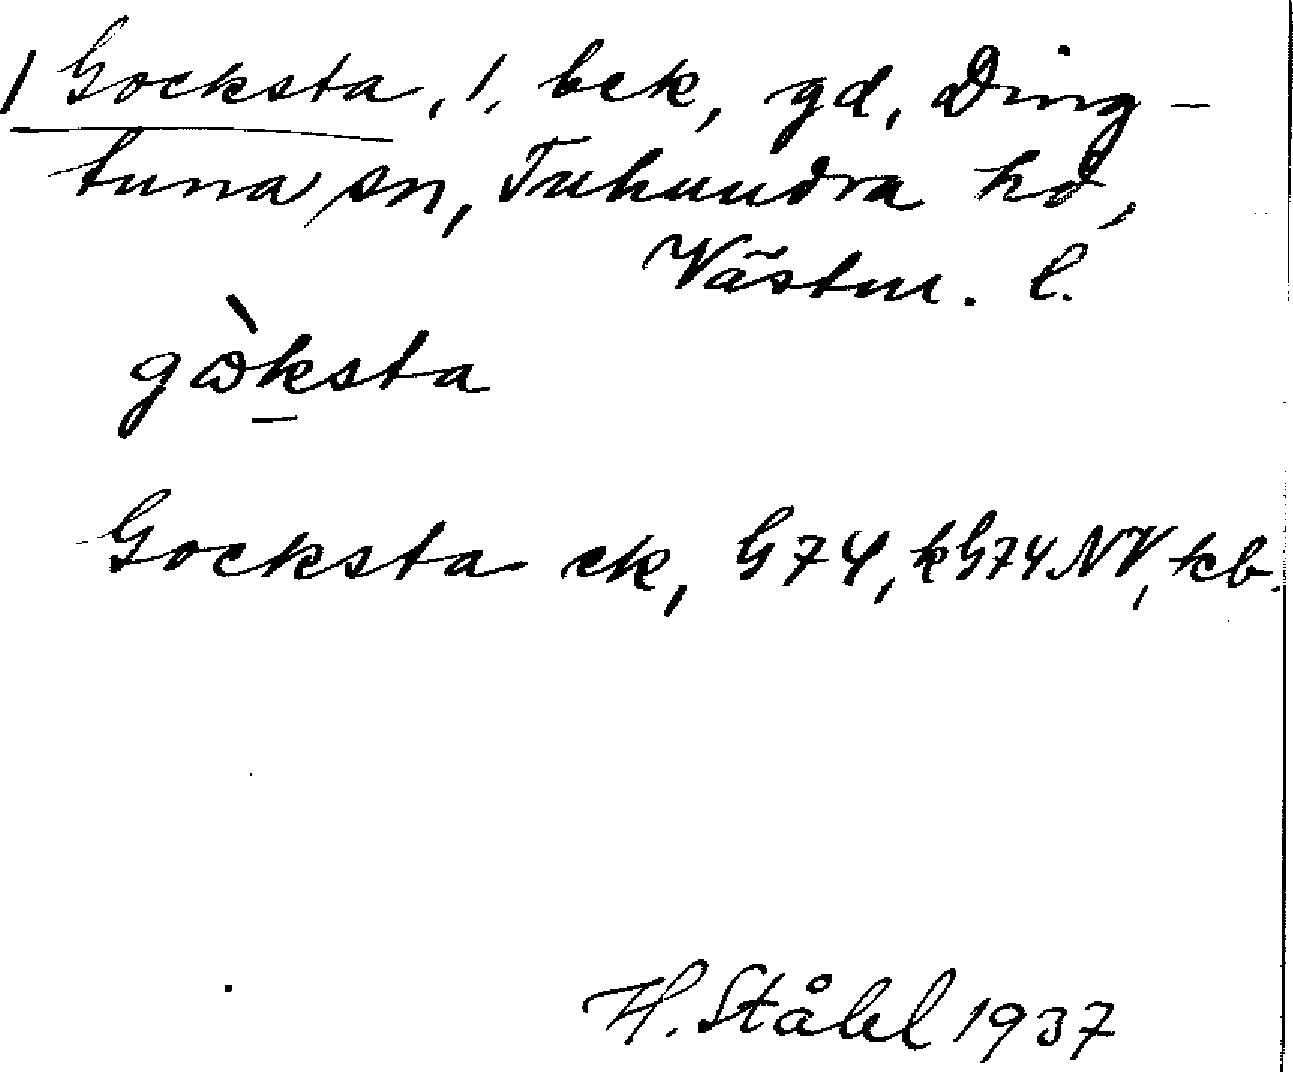 / Gocksta, 1, bek, gd, Ding-
tuna sn, Tuhundra hd,
Västm. l.
gòksta
Gocksta ek, G74, kG74NV, kb.
H. Ståhl 1937